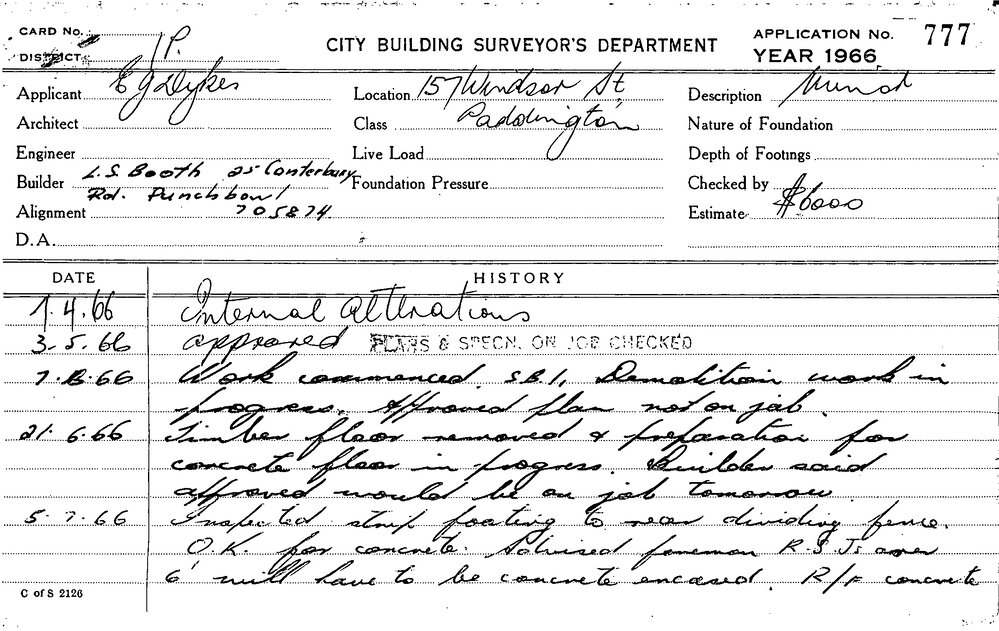 CARD No.
DISTRICT 1P.
CITY BUILDING SURVEYOR'S DEPARTMENT
APPLICATION No. 777
YEAR 1966
Applicant E G Dykes
Location 157 Windsor St,
Description
Architect
Class Paddington
Nature of Foundation
Engineer
Live Load
Depth of Footings
Builder L.S. Booth 25 Canterbury
Foundation Pressure
Checked by
Rd. Punchbowl
Alignment 705874
Estimate $6000
D.A.
DATE HISTORY
1.4.66 Internal alterations
3.5.66 approved PLANS & SPECN. ON JOB CHECKED
7.6.66 Work commenced. S.B.1, Demolition work in
progress. Approved plan not on job.
21.6.66 Timber floor removed & preparation for
concrete floor in progress. Builder said
approved would be on job tomorrow
5.7.66 Inspected strip footing to rear dividing fence.
O.K. for concrete. Advised foreman R.S.Js over
6' will have to be concrete encased. R/F concrete
C of S 2126